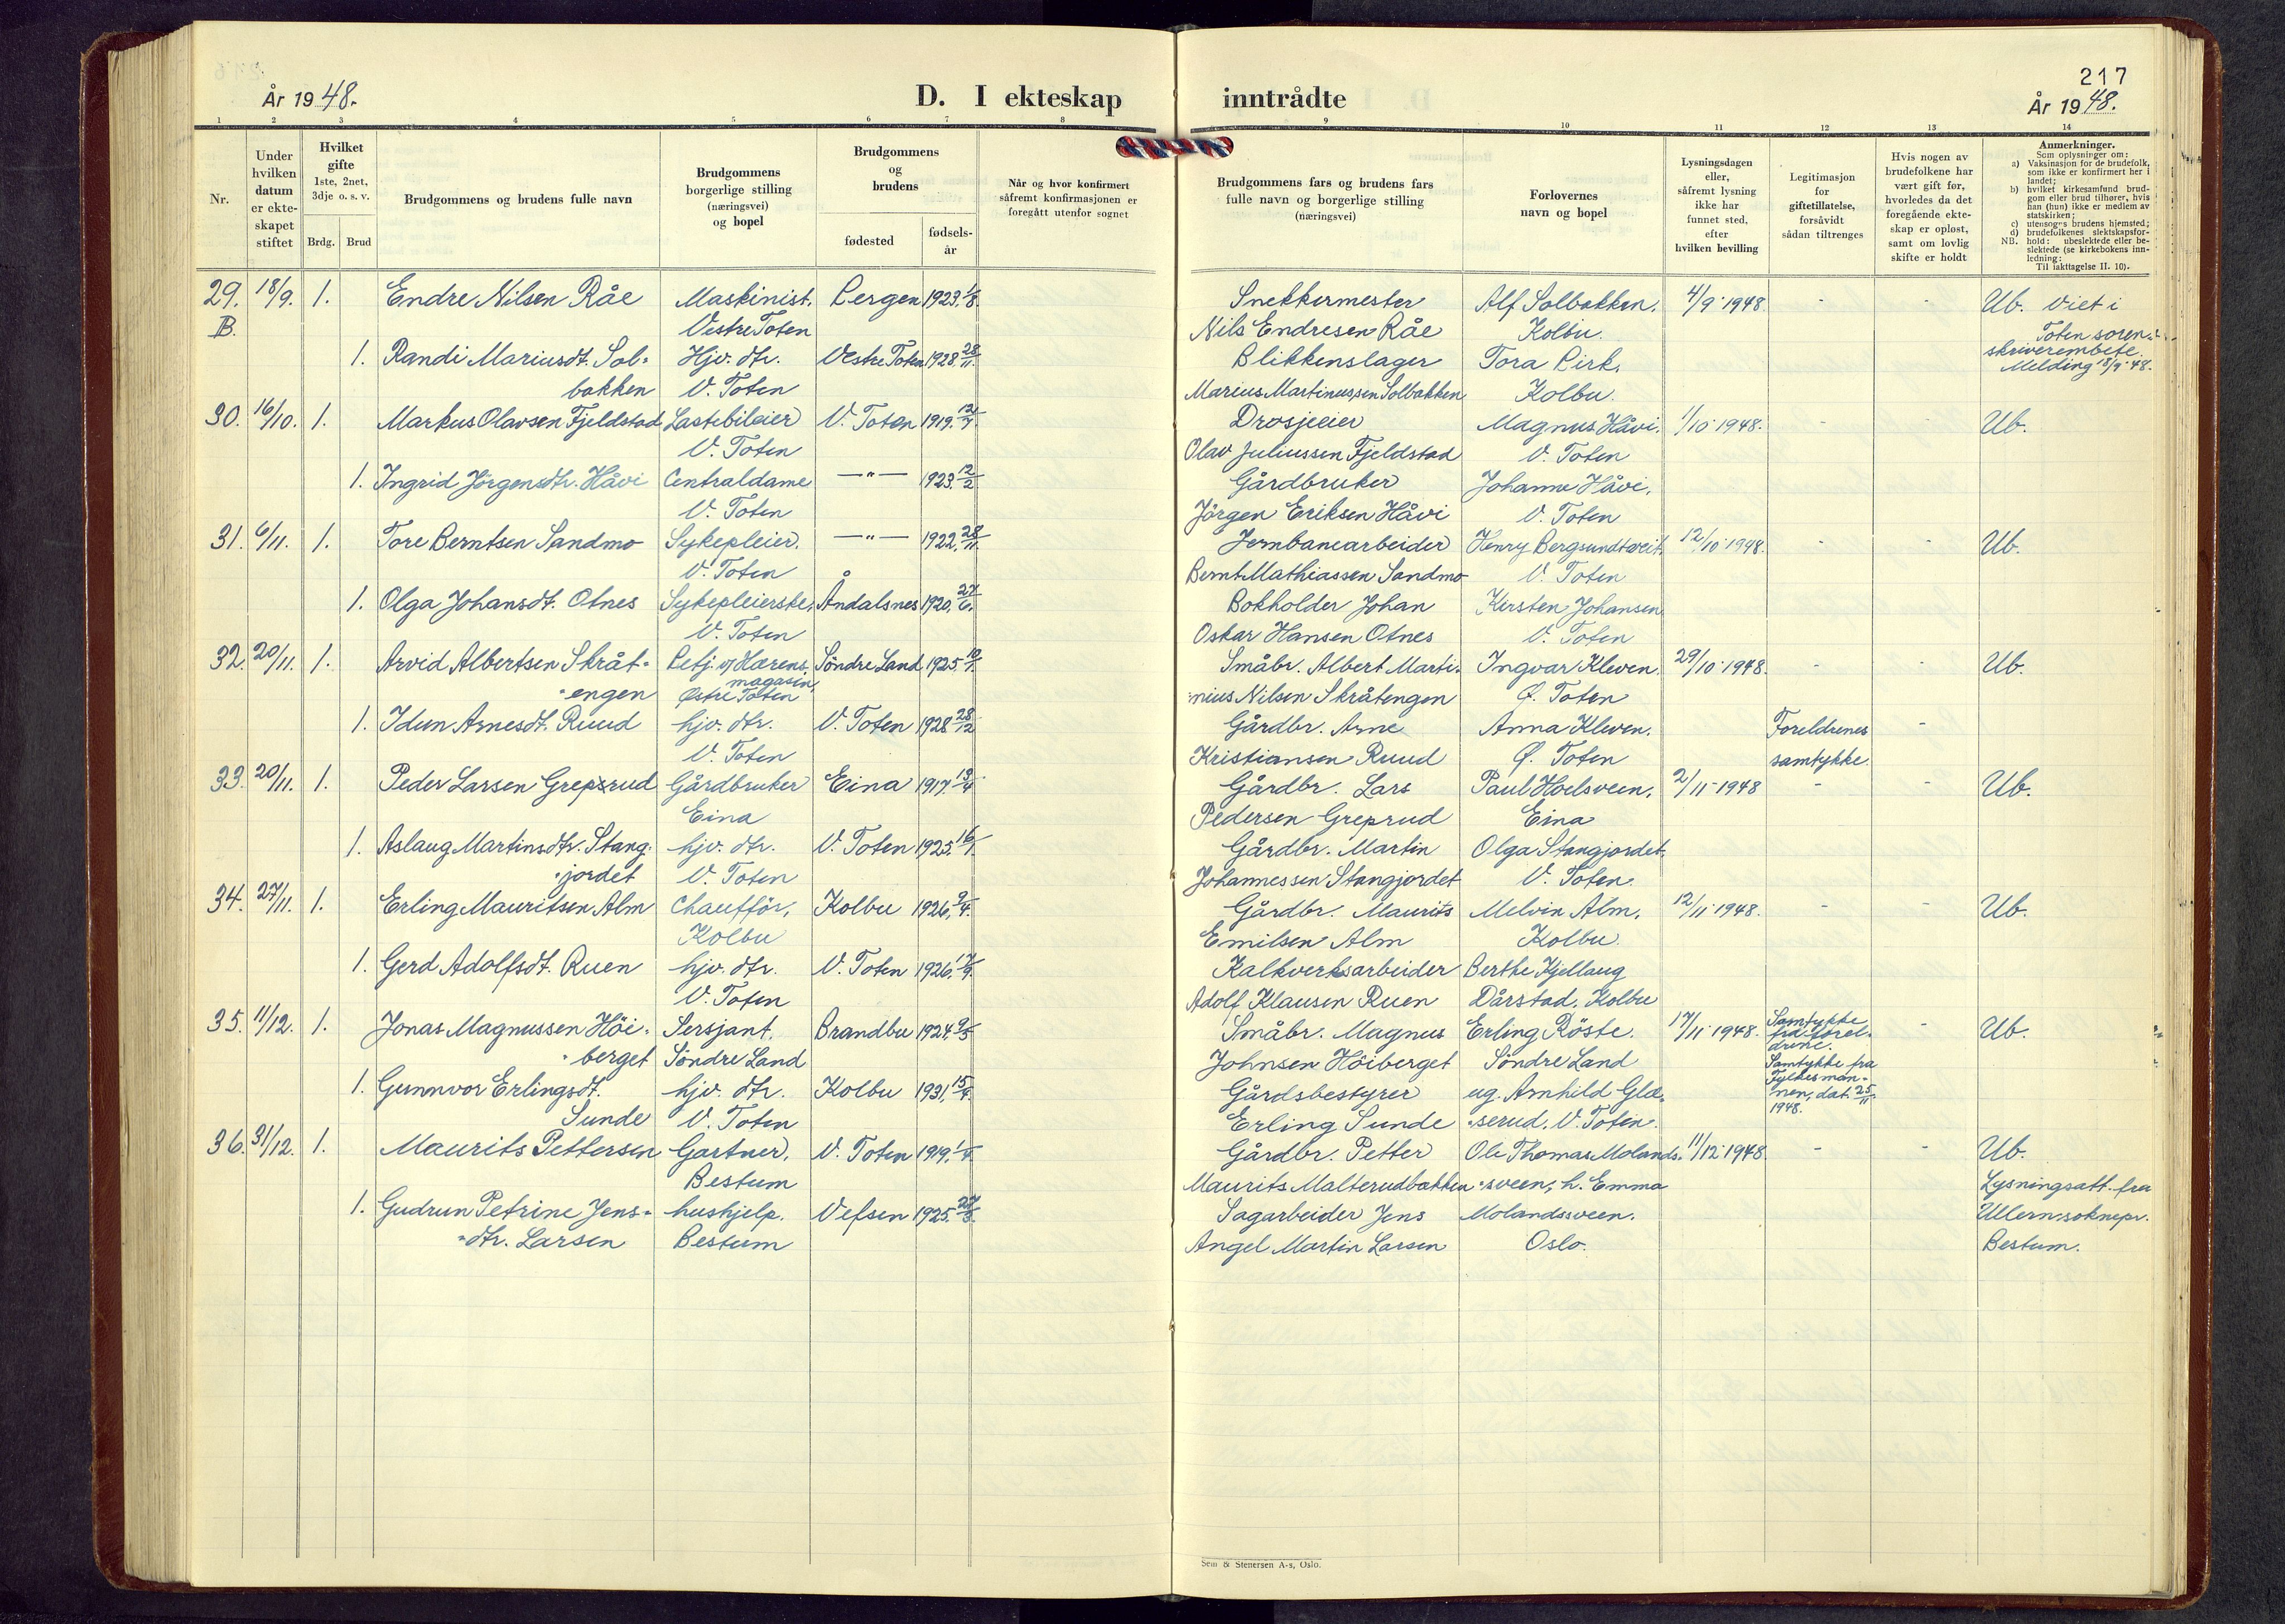 217
År 1948.
D. I ekteskap
inntrådte
År 1948.
1 2 3 4 5 6 7 8 9 10 11 12 13 14
Nr.
Under
hvilken
datum
er ekte-
skapet
stiftet
Hvilket
gifte
1ste, 2net,
3dje o. s. v.
Brdg. Brud
Brudgommens og brudens fulle navn
Brudgommens
borgerlige stilling
(næringsvei)
og bopel
Brudgommens
og
brudens
fødested
fødsels-
år
Når og hvor konfirmert
såfremt konfirmasjonen er
foregått utenfor sognet
Brudgommens fars og brudens fars
fulle navn og borgerlige stilling
(næringsvei)
Forlovernes
navn og bopel
Lysningsdagen
eller,
såfremt lysning
ikke har
funnet sted,
efter
hvilken bevilling
Legitimasjon
for
giftetillatelse,
forsåvidt
sådan tiltrenges
Hvis nogen av
brudefolkene har
vært gift før,
hvorledes da det
foregående ekte-
skap er opløst,
samt om lovlig
skifte er holdt
Anmerkninger.
Som oplysninger om:
a) Vaksinasjon for de brudefolk,
som ikke er konfirmert her i
landet;
b) hvilket kirkesamfund brud-
gom eller brud tilhører, hvis
han (hun) ikke er medlem av
statskirken;
c) utensogns brudens hjemsted;
d) brudefolkenes slektskapsfor-
NB. hold: ubeslektede eller be-
slektede (se kirkebokens inn-
ledning:
Til iakttagelse II. 10).
29. 18/9. 1. Endre Nilsen Råe Maskinist. Bergen 1923. 1/8. Snekkermester Alf Solbakken. 4/9 1948. - - Ub. Viet i
B. Vestre Toten Nils Endresen Råe Kolbu. Toten soren-
1. Randi Mariusdt. Sol- Hjv. dtr. Vestre Toten 1928. 28/11. Blikkenslager Tora Birk. skriverembete.
bakken V. Toten Marius Martinussen Solbakken Kolbu. Melding 18/9-48.
30. 16/10. 1. Markus Olavsen Fjeldstad Lastebileier V. Toten 1919. Drosjeeier Magnus Håvi. 1/10 1948. - - Ub.
V. Toten Olav Juliussen Fjeldstad V. Toten
1. Ingrid Jörgensdtr. Håvi Centraldame —"— 1923. 12/2 Gårdbruker Johanne Håvi.
V. Toten Jörgen Eriksen Håvi V. Toten
31. 6/11. 1. Tore Berntsen Sandmo Sykepleier. —"— 1922. 28/11. Jernbanearbeider Henry Bergsundtveit 12/10 1948. - - Ub.
V. Toten Bernt Mathiassen Sandmo V. Toten
1. Olga Johansdt. Otnes Sykepleierske. Åndalsnes 1920. 27/6. Bokholder Johan Kirsten Johansen
V. Toten Oskar Hansen Otnes V. Toten
32. 20/11. 1. Arvid Albertsen Skråt- Betj. v/ Hærens Söndre Land 1925 10/1. Småbr. Albert Marti- Ingvar Kleven. 29/10 1948. - - Ub.
magasin,
-engen Østre Toten -nius Nilsen Skråtengen Ø. Toten
1. Idun Arnesdt. Ruud hjv. dtr. V. Toten 1928 28/12 Gårdbr. Arne Anna Kleven. Foreldrenes -
V. Toten Kristiansen Ruud Ø. Toten samtykke.
33. 20/11. 1. Peder Larsen Greprud Gårdbruker Eina 1917 13/4 Gårdbr. Lars Paul Hoelsveen. 2/11 1948 - - Ub.
Eina Pedersen Greprud Eina
1. Aslaug Martinsdtr. Stang- hjv. dtr. V. Toten 1925. 16/1. Gårdbr. Martin Olga Stangjordet.
-jordet V. Toten Johannessen Stangjordet V. Toten.
34. 27/11. 1. Erling Mauritsen Alm Chauffør, Kolbu 1926. 9/4. Gårdbr. Maurits Melvin Alm. 12/11 1948. - - Ub.
Kolbu Emilsen Alm Kolbu.
1. Gerd Adolfsdt. Ruen hjv. dtr. V. Toten 1926. Kalkverksarbeider Berthe Kjellaug
V. Toten Adolf Klausen Ruen Dårstad. Kolbu
35. 11/12. 1. Jonas Magnussen Höi- Sersjant. Brandbu 1924. 9/5 Småbr. Magnus Erling Röste. 17/11 1948. Samtykke fra forel- - Ub.
drene.
-berget Söndre Land Johnsen Höiberget Söndre Land Samtykke fra
1. Gunnvor Erlingsdt. hjv. dtr. Kolbu 1931. 15/4. Gårdsbestyrer ug. Arnhild Glæ- Fylkesman-
nen, dat. 25/11
Sunde V. Toten Erling Sunde -serud. V. Toten. 1948.
36. 31/12. 1. Maurits Pettersen Gartner. V. Toten 1919. 1/4. Gårdbr. Petter Ole Thomas Molands- 11/12 1948. - - Ub.
Bestum Maurits Malterudbakken -sveen, h. Emma Lysningsatt. fra
1. Gudrun Petrine Jens- hushjelp. Vefsen 1925. Sagarbeider Jens Molandssveen. Ullern soknepr.
-dtr. Larsen Bestum Angel Martin Larsen Oslo. Bestum.
Sem & Stenersen A-s, Oslo.